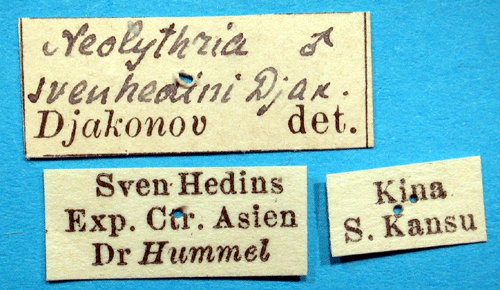 Neolythria ♂
svenhedini Djak.
Djakonov det.
Sven Hedins
Exp. Ctr. Asien
Dr Hummel
Kina
S. Kansu